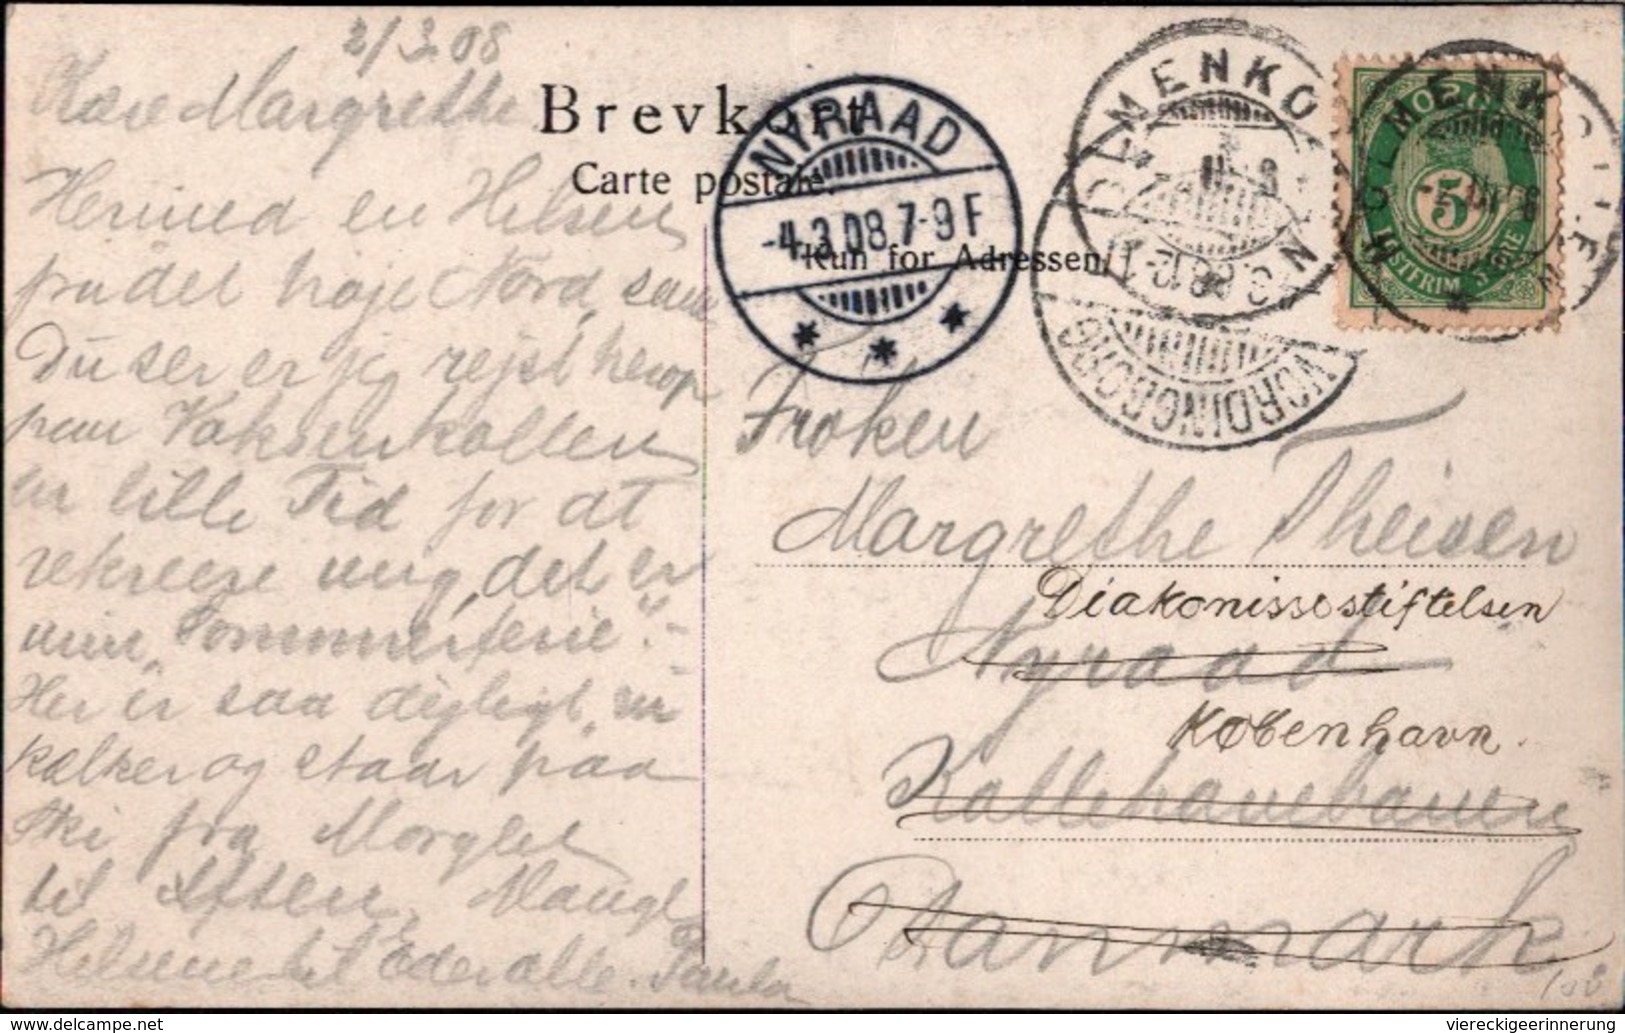 2/3.08
Kære Margrethe
Hermed en Hilsen
fra det høje Nord, som
Du ser er jeg rejst herop
paa Voksenkollen
en lille Tid for at
rekreere mig, det er
min "Sommerferie".-
Her er saa dejligt, vi
kælker og staar paa
Ski fra Morgen
til Aften. Mange
Hilsener til Eder alle. Paula
Brevkort
Carte postale.
Kun for Adressen
NYRAAD
-4.3.08.7-9 F
HOLMENKOLLEN
VORDINGBORG
HOLMENKOLLEN
NORGE
5
POSTFRIM. 5 ØRE
Frøken
Margrethe Theisen
Diakonissestiftelsen
Nyraad
København.
Kallehavebanen
Danmark
100
delcampe.net
viereckigeerinnerung